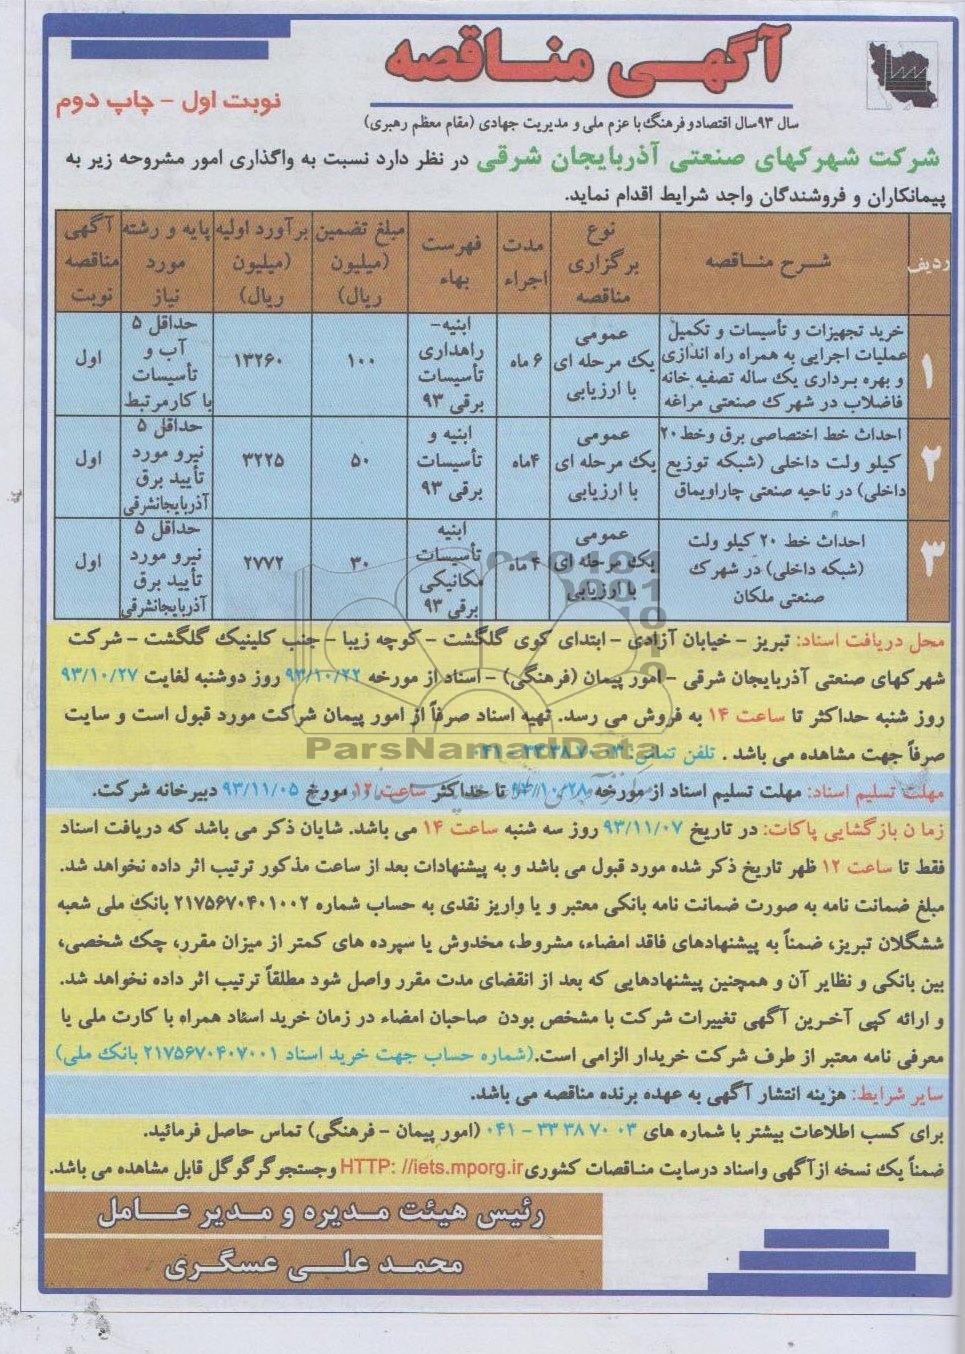 آگهی مناقصه
نوبت اول - چاپ دوم
سال ۹۳سال اقتصادو فرهنگ با عزم ملی و مدیریت جهادی (مقام معظم رهبری)
شرکت شهرکهای صنعتی آذربایجان شرقی در نظر دارد نسبت به واگذاری امور مشروحه زیر به
پیمانکاران و فروشندگان واجد شرایط اقدام نماید.
ردیف | شرح مناقصه | نوع برگزاری مناقصه | مدت اجراء | فهرست بهاء | مبلغ تضمین (میلیون ریال) | برآورد اولیه (میلیون ریال) | پایه و رشته مورد نیاز | آگهی مناقصه نوبت
۱ | خرید تجهیزات و تأسیسات و تکمیل عملیات اجرایی به همراه راه اندازی و بهره برداری یک ساله تصفیه خانه فاضلاب در شهرک صنعتی مراغه | عمومی یک مرحله ای با ارزیابی | ۶ ماه | ابنیه- راهداری تأسیسات برقی ۹۳ | ۱۰۰ | ۱۳۲۶۰ | حداقل ۵ آب و تأسیسات با کارمرتبط | اول
۲ | احداث خط اختصاصی برق وخط ۲۰ کیلو ولت داخلی (شبکه توزیع داخلی) در ناحیه صنعتی چاراویماق | عمومی یک مرحله ای با ارزیابی | ۴ماه | ابنیه و تأسیسات برقی ۹۳ | ۵۰ | ۳۲۲۵ | حداقل ۵ نیرو مورد تأیید برق آذربایجانشرقی | اول
۳ | احداث خط ۲۰ کیلو ولت (شبکه داخلی) در شهرک صنعتی ملکان | عمومی یک مرحله ای با ارزیابی | ۴ ماه | ابنیه تأسیسات مکانیکی برقی ۹۳ | ۳۰ | ۲۷۷۲ | حداقل ۵ نیرو مورد تأیید برق آذربایجانشرقی | اول
محل دریافت اسناد: تبریز - خیابان آزادی - ابتدای کوی گلگشت - کوچه زیبا - جنب کلینیک گلگشت - شرکت
شهرکهای صنعتی آذربایجان شرقی - امور پیمان (فرهنگی) - اسناد از مورخه ۹۳/۱۰/۲۲ روز دوشنبه لغایت ۹۳/۱۰/۲۷
روز شنبه حداکثر تا ساعت ۱۴ به فروش می رسد. تهیه اسناد صرفاً از امور پیمان شرکت مورد قبول است و سایت
صرفاً جهت مشاهده می باشد . تلفن تماس: ۰۳ ۷۰ ۳۸ ۳۳ - ۰۴۱
ParsNamadData
مهلت تسلیم اسناد: مهلت تسلیم اسناد از مورخه ۹۳/۱۰/۲۸ تا حداکثر ساعت ۱۲ مورخ ۹۳/۱۱/۰۵ دبیرخانه شرکت.
زمان بازگشایی پاکات: در تاریخ ۹۳/۱۱/۰۷ روز سه شنبه ساعت ۱۴ می باشد. شایان ذکر می باشد که دریافت اسناد
فقط تا ساعت ۱۲ ظهر تاریخ ذکر شده مورد قبول می باشد و به پیشنهادات بعد از ساعت مذکور ترتیب اثر داده نخواهد شد.
مبلغ ضمانت نامه به صورت ضمانت نامه بانکی معتبر و یا واریز نقدی به حساب شماره ۲۱۷۵۶۷۰۴۰۱۰۰۲ بانک ملی شعبه
ششگلان تبریز، ضمناً به پیشنهادهای فاقد امضاء، مشروط، مخدوش یا سپرده های کمتر از میزان مقرر، چک شخصی،
بین بانکی و نظایر آن و همچنین پیشنهادهایی که بعد از انقضای مدت مقرر واصل شود مطلقاً ترتیب اثر داده نخواهد شد.
و ارائه کپی آخرین آگهی تغییرات شرکت با مشخص بودن صاحبان امضاء در زمان خرید اسناد همراه با کارت ملی یا
معرفی نامه معتبر از طرف شرکت خریدار الزامی است.(شماره حساب جهت خرید اسناد ۲۱۷۵۶۷۰۴۰۷۰۰۱ بانک ملی)
سایر شرایط: هزینه انتشار آگهی به عهده برنده مناقصه می باشد.
برای کسب اطلاعات بیشتر با شماره های ۰۳ ۷۰ ۳۸ ۳۳ - ۰۴۱ (امور پیمان - فرهنگی) تماس حاصل فرمائید.
ضمناً یک نسخه ازآگهی واسناد درسایت مناقصات کشوری HTTP: //iets.mporg.ir وجستجوگر گوگل قابل مشاهده می باشد.
رئیس هیئت مدیره و مدیر عامل
محمد علی عسگری